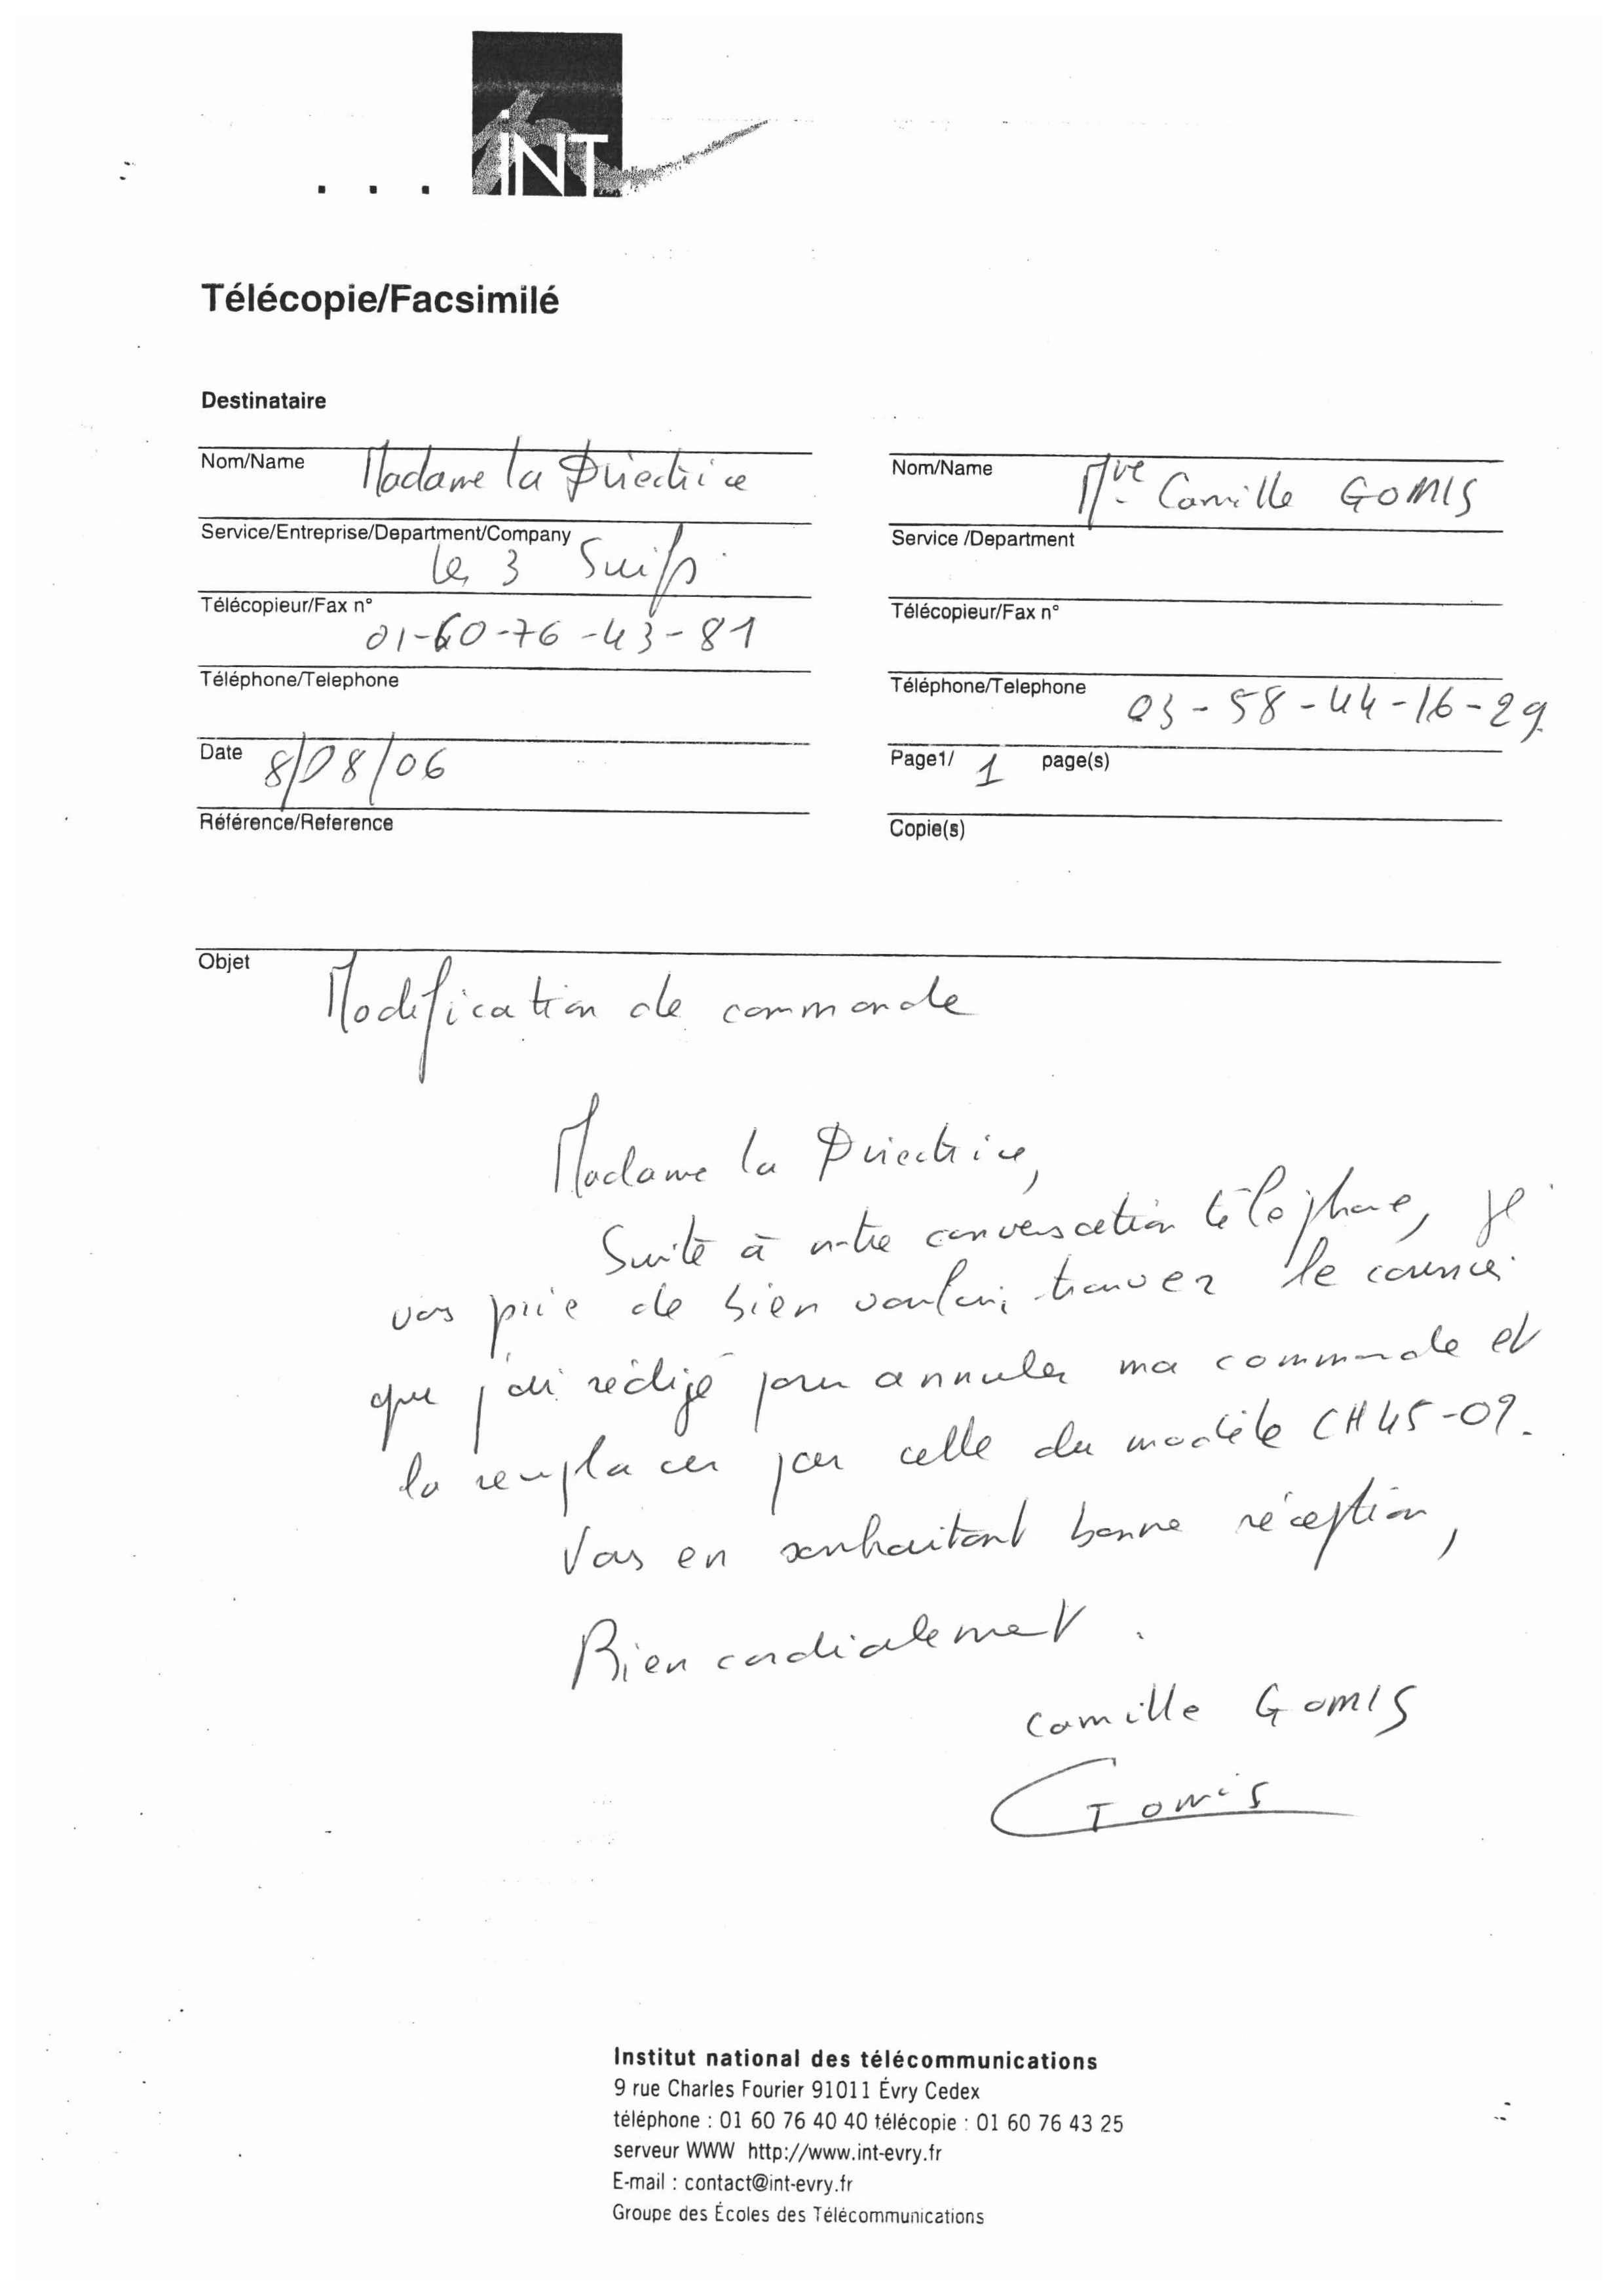 iNT
Télécopie/Facsimilé
Destinataire
Nom/Name Madame la Directrice
Service/Entreprise/Department/Company
les 3 Suisses
Télécopieur/Fax n°
01-60-76-43-81
Téléphone/Telephone
Date 8/08/06
Référence/Reference
Nom/Name Mve Camille GOMIS
Service /Department
Télécopieur/Fax n°
Téléphone/Telephone 03-58-44-16-29
Page1/ 1 page(s)
Copie(s)
Objet
Modification de commande
Madame la Directrice,
Suite à notre conversation téléphone, je
vous prie de bien vouloir trouver le courrier
que j'ai rédigé pour annuler ma commande et
la remplacer par celle du modèle CH45-09.
Vous en souhaitant bonne réception,
Bien cordialement.
Camille GOMIS
Gomis
Institut national des télécommunications
9 rue Charles Fourier 91011 Évry Cedex
téléphone : 01 60 76 40 40 télécopie : 01 60 76 43 25
serveur WWW http://www.int-evry.fr
E-mail : contact@int-evry.fr
Groupe des Écoles des Télécommunications